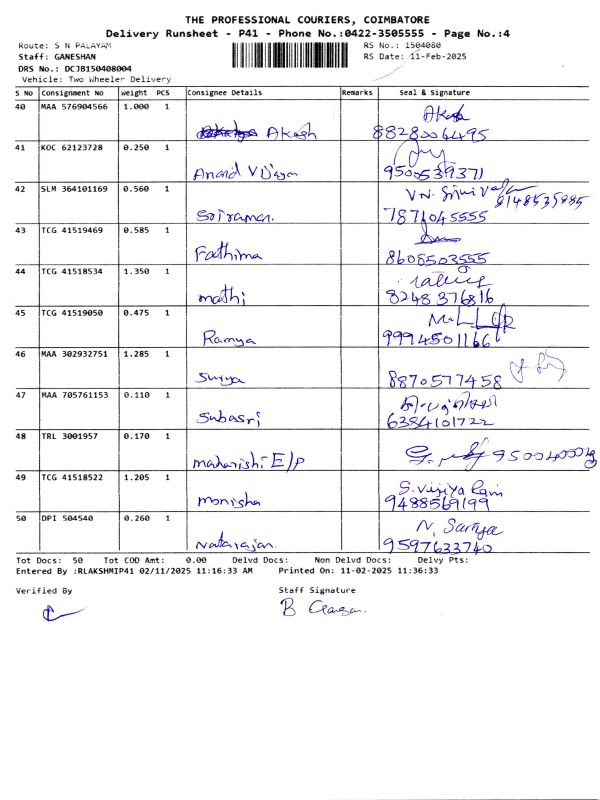 THE PROFESSIONAL COURIERS, COIMBATORE
Delivery Runsheet - P41 - Phone No.:0422-3505555 - Page No.:4
Route: S N PALAYAM
RS No.: 1504080
Staff: GANESHAN
RS Date: 11-Feb-2025
DRS No.: DCJB150408004
Vehicle: Two Wheeler Delivery
S No Consignment No Weight PCS Consignee Details Remarks Seal & Signature
40 MAA 576904566 1.000 1 Akash
Akash
8828006495
41 KOC 62123728 0.250 1 Anand Vijaya
9500539371
42 SLM 364101169 0.560 1 Sriraman.
7871045555
43 TCG 41519469 0.585 1 Fathima
8608503555
44 TCG 41518534 1.350 1 mathi
8248 376816
45 TCG 41519050 0.475 1 Ramya
9994501166
46 MAA 302932751 1.285 1 Surya
8870577458
47 MAA 705761153 0.110 1 Subasri
6384101722
48 TRL 3001957 0.170 1 maharishi E/P
49 TCG 41518522 1.205 1 monisha
S. Vijiya Rani
9488569199
50 DPI 504540 0.260 1 Natarajan.
N. Sariya
9597633740
Tot Docs: 50 Tot COD Amt: 0.00 Delvd Docs: Non Delvd Docs: Delvy Pts:
Entered By :RLAKSHMIP41 02/11/2025 11:16:33 AM Printed On: 11-02-2025 11:36:33
Verified By
Staff Signature